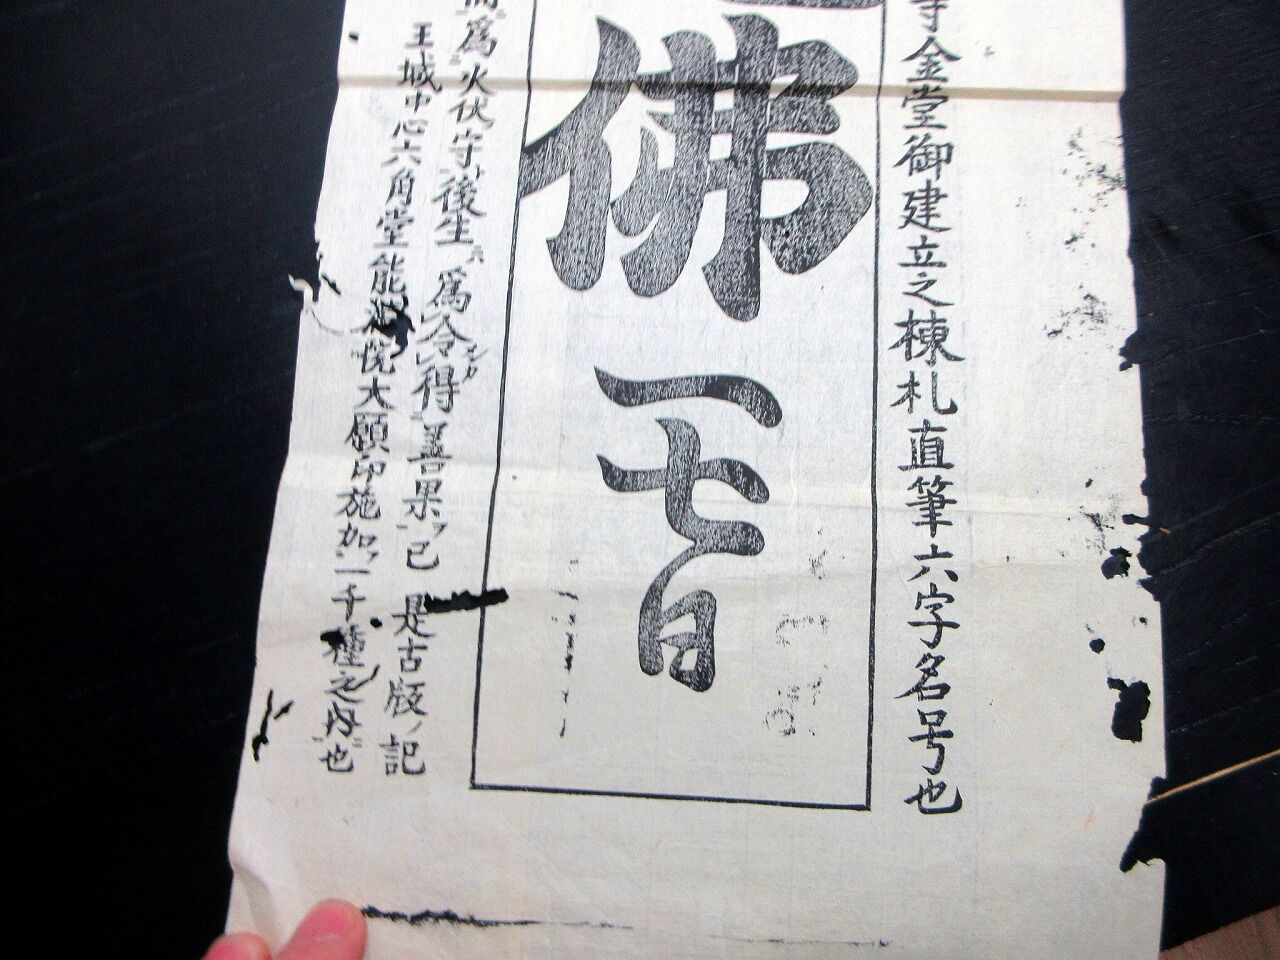 寺金堂御建立之棟札直筆六字名号也
佛一七日
為火伏守後生ニ為令得善果ノ已 是古版ノ記
王城中心六角堂能 悦大願印施加一千種之内也